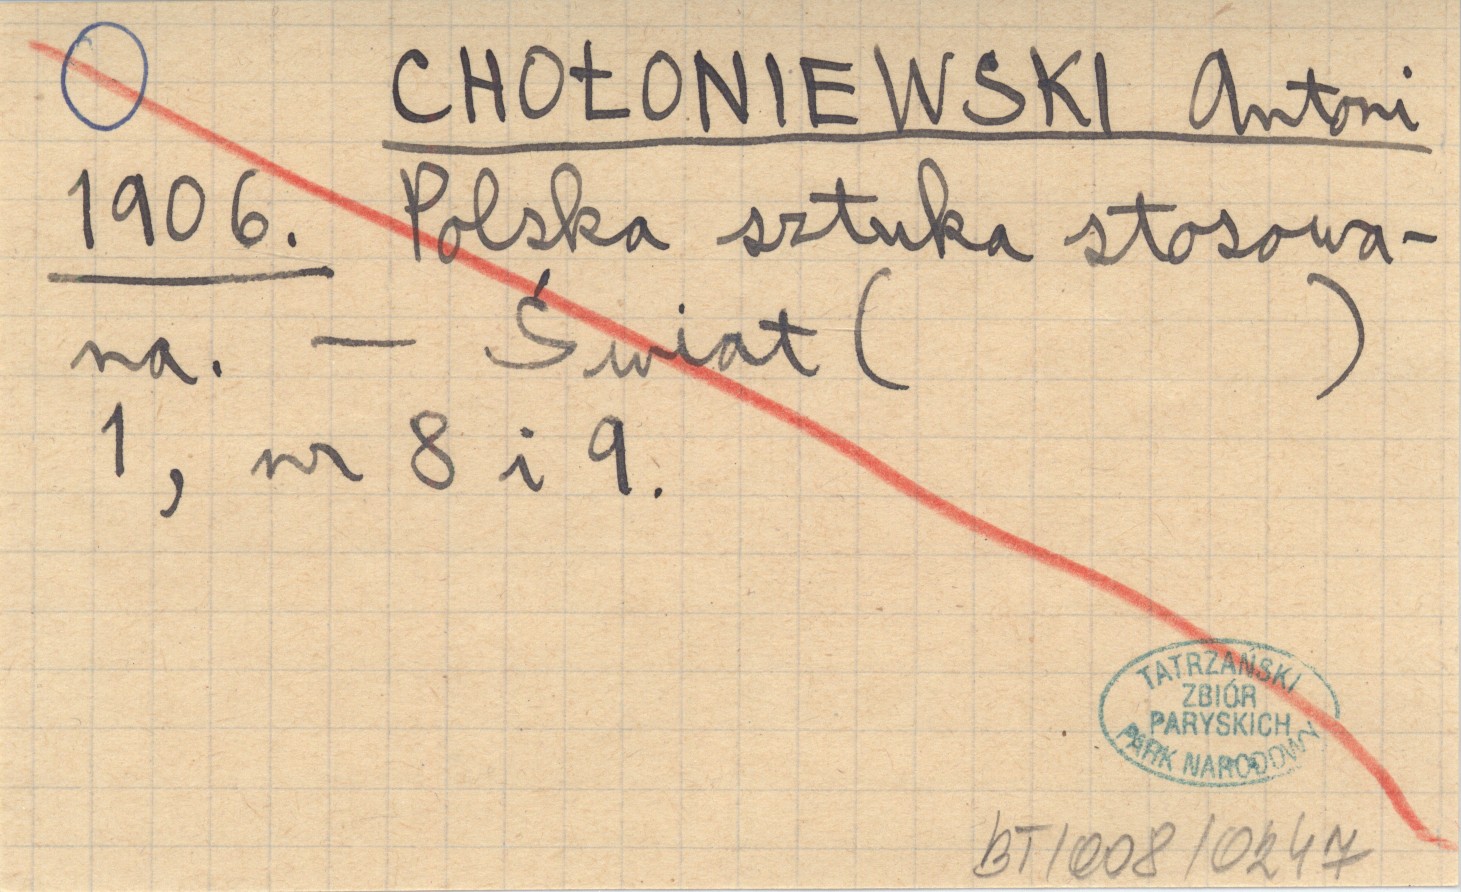 CHOŁONIEWSKI Antoni
1906. Polska sztuka stosowa-
na. — Świat (          )
1, nr 8 i 9.
TATRZAŃSKI
ZBIÓR
PARYSKICH
PARK NARODOWY
BT/008/0247